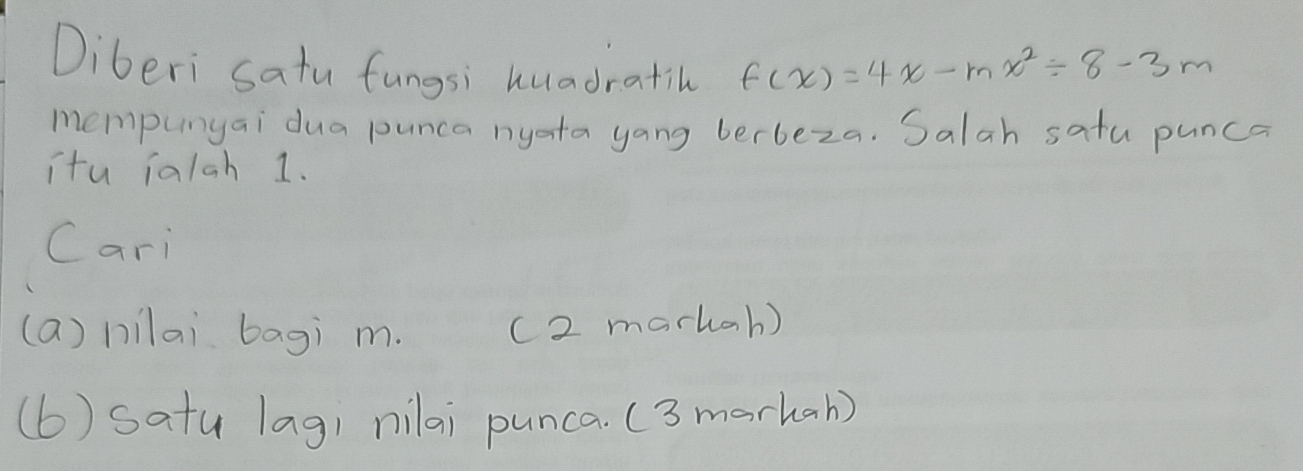 Diberi satu fungsi kuadratik f(x) = 4x - mx² ÷ 8 - 3m
mempunyai dua punca nyata yang berbeza. Salah satu punca
itu ialah 1.
Cari
(a) nilai bagi m. (2 markah)
(b) satu lagi nilai punca. (3 markah)